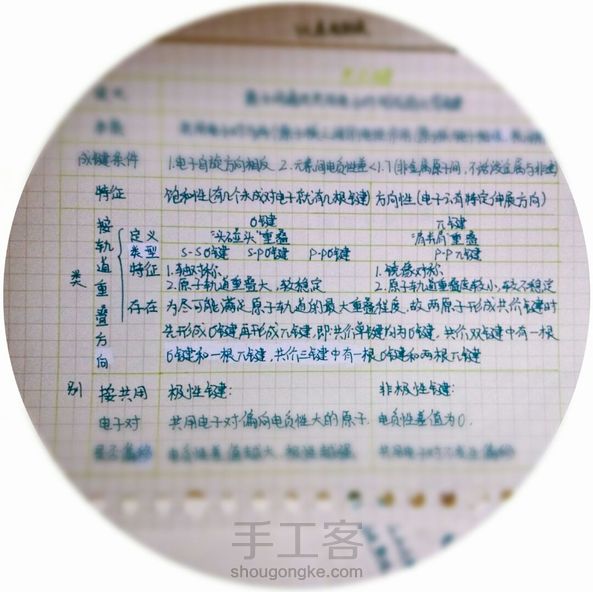 成键条件 1.电子自旋方向相反 2.元素间电负性差<1.7(非金属原子间,不活泼金属与非金
特征 饱和性(有几个未成对电子就有几根共价键) 方向性(电子云有特定伸展方向)
σ键 π键
定义 "头碰头"重叠 "肩并肩"重叠
类型 s-sσ键 s-pσ键 p-pσ键 p-pπ键
特征 1.轴对称 1.镜像对称
2.原子轨道重叠大,较稳定 2.原子轨道重叠度较小,较不稳定
按轨道重叠方向
类别
存在 为尽可能满足原子轨道的最大重叠程度,故两原子形成共价键时
先形成σ键再形成π键,即共价单键均为σ键,共价双键中有一根
σ键和一根π键,共价三键中有一根σ键和两根π键
按共用 极性键: 非极性键:
电子对 共用电子对偏向电负性大的原子. 电负性差值为0.
是否偏移 电负性差值越大,极性越强 共用电子对不发生偏移
手工客
shougongke.com